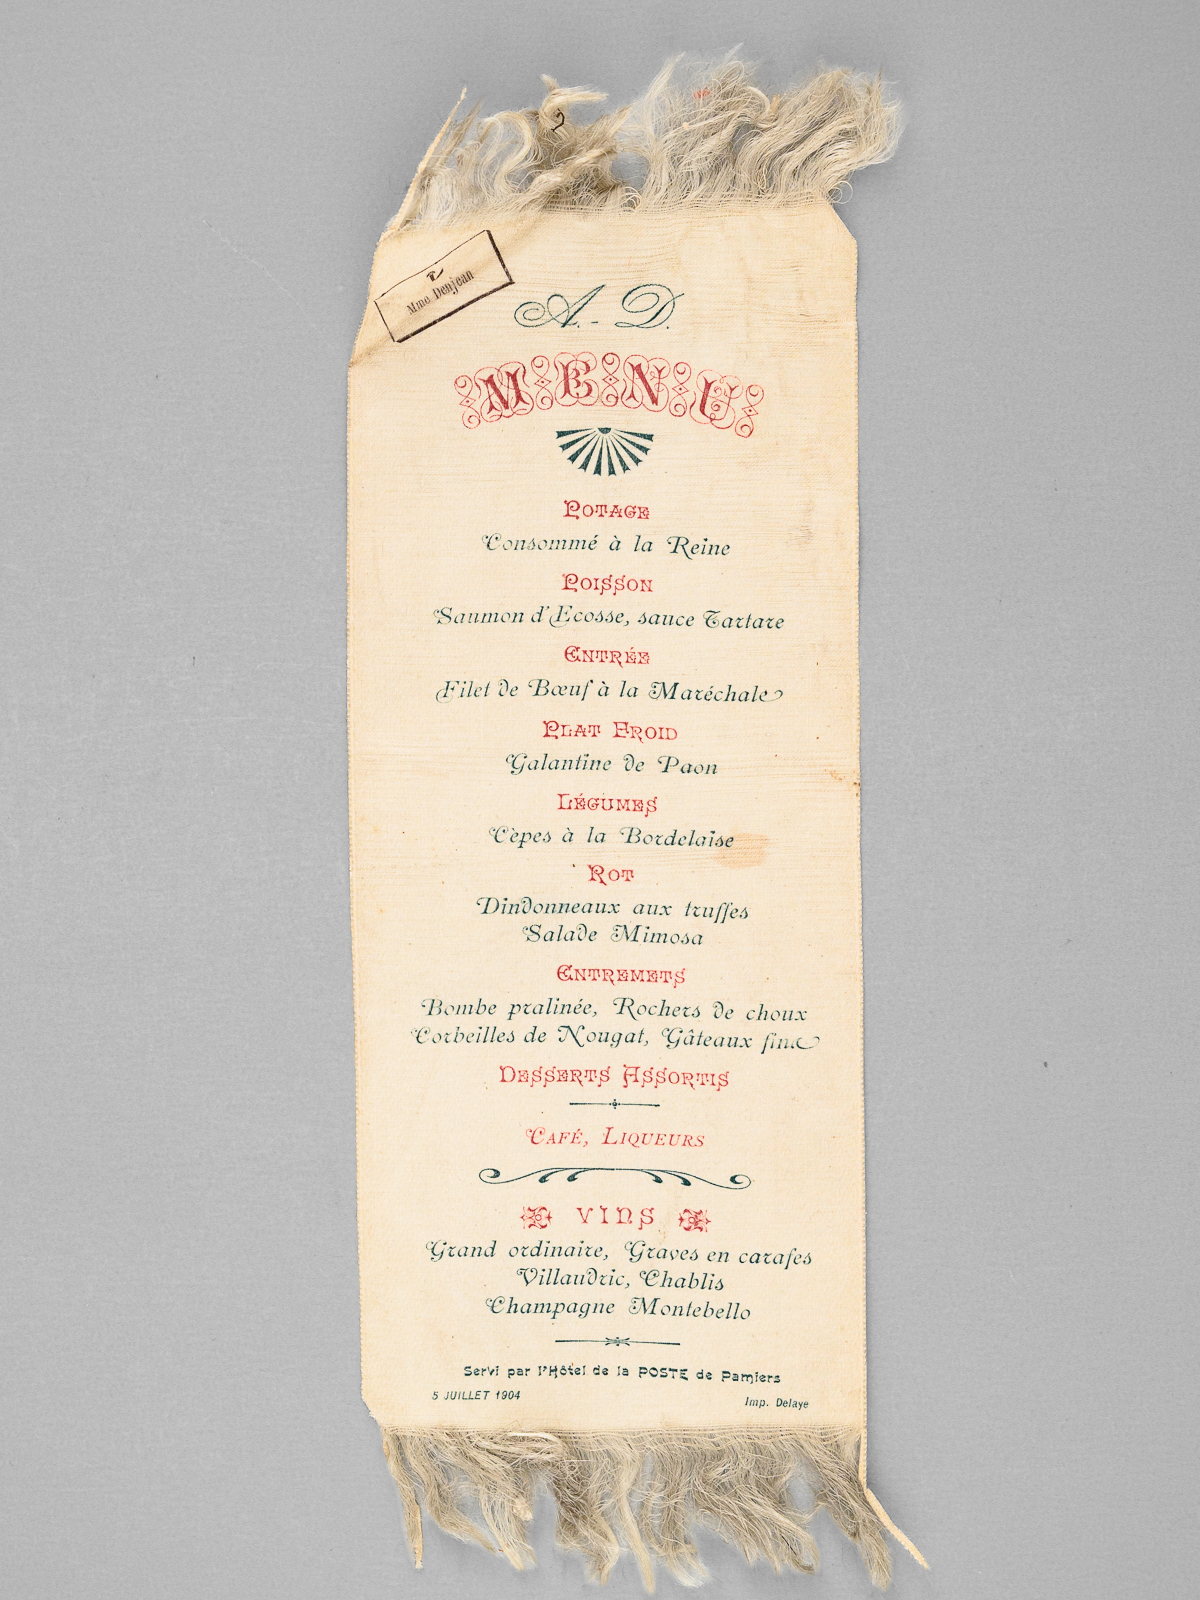 Mme Denjean
A.-D.
MENU
POTAGE
Consommé à la Reine
POISSON
Saumon d'Ecosse, sauce Tartare
ENTRÉE
Filet de Bœuf à la Maréchale
PLAT FROID
Galantine de Paon
LÉGUMES
Cèpes à la Bordelaise
ROT
Dindonneaux aux truffes
Salade Mimosa
ENTREMETS
Bombe pralinée, Rochers de choux
Corbeilles de Nougat, Gâteaux fins
DESSERTS ASSORTIS
CAFÉ, LIQUEURS
VINS
Grand ordinaire, Graves en carafes
Villaudric, Chablis
Champagne Montebello
Servi par l'Hôtel de la POSTE de Pamiers
5 JUILLET 1904
Imp. Delaye